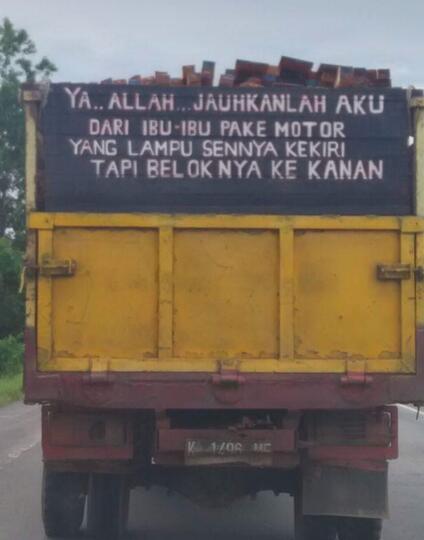 YA.. ALLAH...JAUHKANLAH AKU
DARI IBU-IBU PAKE MOTOR
YANG LAMPU SENNYA KEKIRI
TAPI BELOKNYA KE KANAN
K 1496 ME